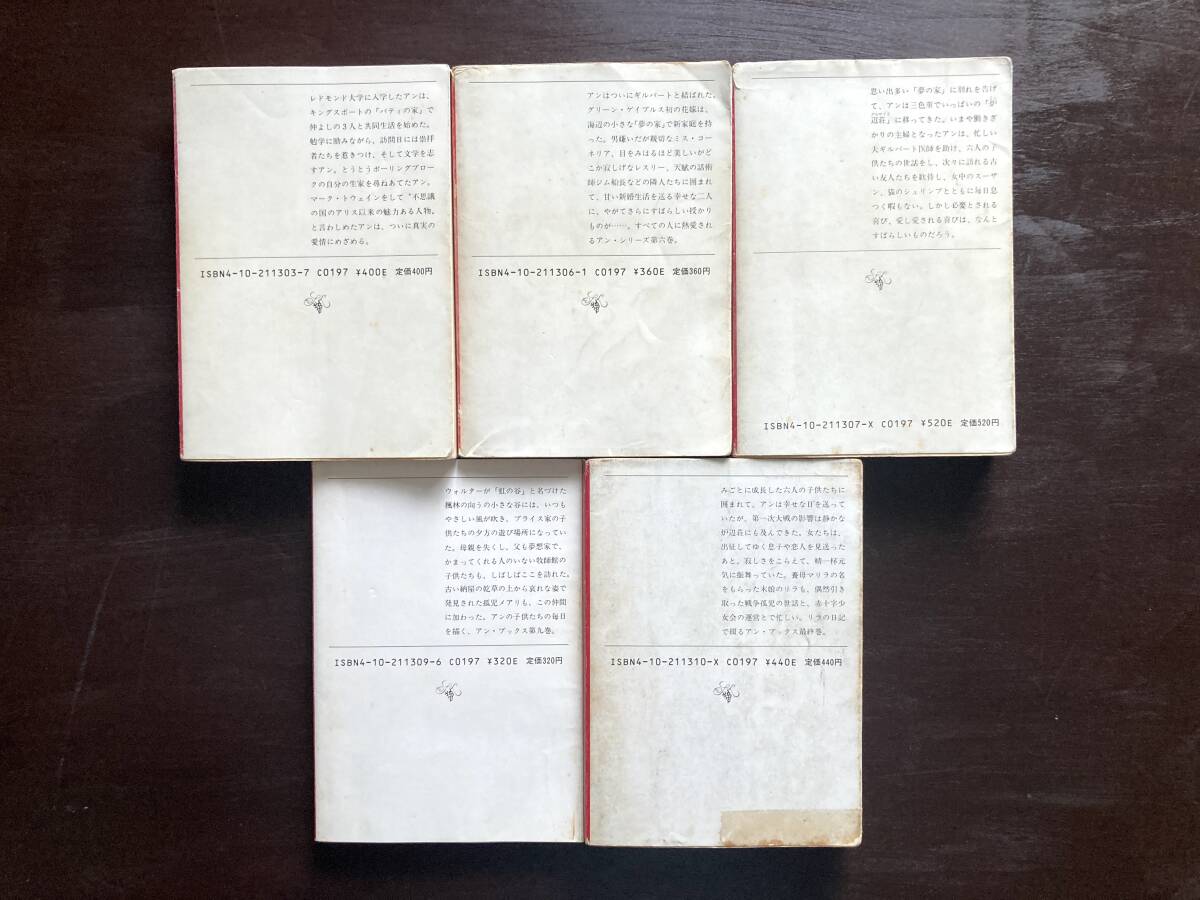 レドモンド大学に入学したアンは、
キングスポートの「パティの家」で
仲よしの3人と共同生活を始めた。
勉学に励みながら、訪問日には崇拝
者たちを惹きつけ、そして文学を志
すアン。とうとうボーリングブロー
クの自分の生家を尋ねあてたアン。
マーク・トウェインをして〝不思議
の国のアリス以来の魅力ある人物〟
と言わしめたアンは、ついに真実の
愛情にめざめる。
ISBN4-10-211303-7 C0197 ¥400E 定価400円
アンはついにギルバートと結ばれた。
グリーン・ゲイブルス初の花嫁は、
海辺の小さな「夢の家」で新家庭を持
った。男嫌いだが親切なミス・コー
ネリア、目をみはるほど美しいがど
こか寂しげなレスリー、天賦の話術
師ジム船長などの隣人たちに囲まれ
て、甘い新婚生活を送る幸せな二人
に、やがてさらにすばらしい授かり
ものが……。すべての人に熱愛され
るアン・シリーズ第六巻。
ISBN4-10-211306-1 C0197 ¥360E 定価360円
思い出多い「夢の家」に別れを告げ
て、アンは三色菫でいっぱいの「炉
辺荘」に移ってきた。いまや働きざ
かりの主婦となったアンは、忙しい
夫ギルバート医師を助け、六人の子
供たちの世話をし、次々に訪れる古
い友人たちを歓待し、女中のスーザ
ン、猫のシュリンプとともに毎日息
つく暇もない。しかし必要とされる
喜び、愛し愛される喜びは、なんと
すばらしいものだろう。
ISBN4-10-211307-X C0197 ¥520E 定価520円
ウォルターが「虹の谷」と名づけた
楓林の向うの小さな谷には、いつも
やさしい風が吹き、ブライス家の子
供たちの夕方の遊び場所になってい
た。母親を失くし、父も夢想家で、
かまってくれる人のいない牧師館の
子供たちも、しばしばここを訪れた。
古い納屋の乾草の上から哀れな姿で
発見された孤児メアリも、この仲間
に加わった。アンの子供たちの毎日
を描く、アン・ブックス第九巻。
ISBN4-10-211309-6 C0197 ¥320E 定価320円
みごとに成長した六人の子供たちに
囲まれて、アンは幸せな日を送って
いたが、第一次大戦の影響は静かな
炉辺荘にも及んできた。女たちは、
出征してゆく息子や恋人を見送った
あと、寂しさをこらえて、精一杯元
気に振舞っていた。養母マリラの名
をもらった末娘のリラも、偶然引き
取った戦争孤児の世話と、赤十字少
女会の運営とで忙しい。リラの日記
で綴るアン・ブックス最終巻。
ISBN4-10-211310-X C0197 ¥440E 定価440円